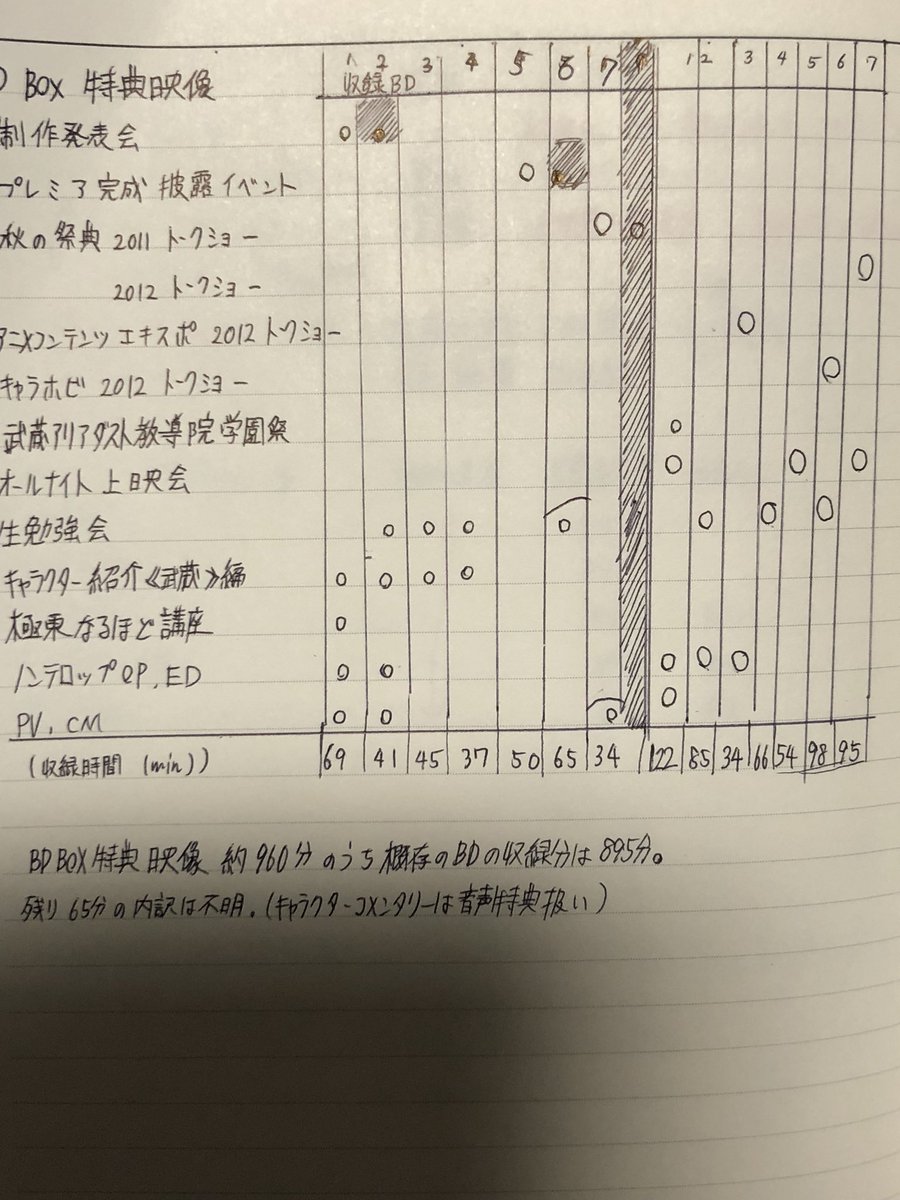 BOX 特典映像 1 2 3 4 5 6 7 1 2 3 4 5 6 7
収録BD
制作発表会 ○ ○
プレミア完成披露イベント ○
秋の祭典 2011 トークショー ○ ○
2012 トークショー ○
アニメコンテンツエキスポ 2012 トークショー ○
キャラホビ 2012 トークショー ○
武蔵アリアダスト教導院学園祭 ○
オールナイト上映会 ○ ○ ○
生勉強会 ○ ○ ○ ○ ○ ○ ○
キャラクター紹介《武蔵》編 ○ ○ ○ ○
極東なるほど講座 ○
ノンテロップOP,ED ○ ○ ○ ○ ○
PV,CM ○ ○ ○ ○
(収録時間 (min)) 69 41 45 37 50 65 34 122 85 34 66 54 98 95
BD BOX特典映像 約960分のうち概存のBDの収録分は895分。
残り65分の内訳は不明。(キャラクターコメンタリーは音声特典扱い)